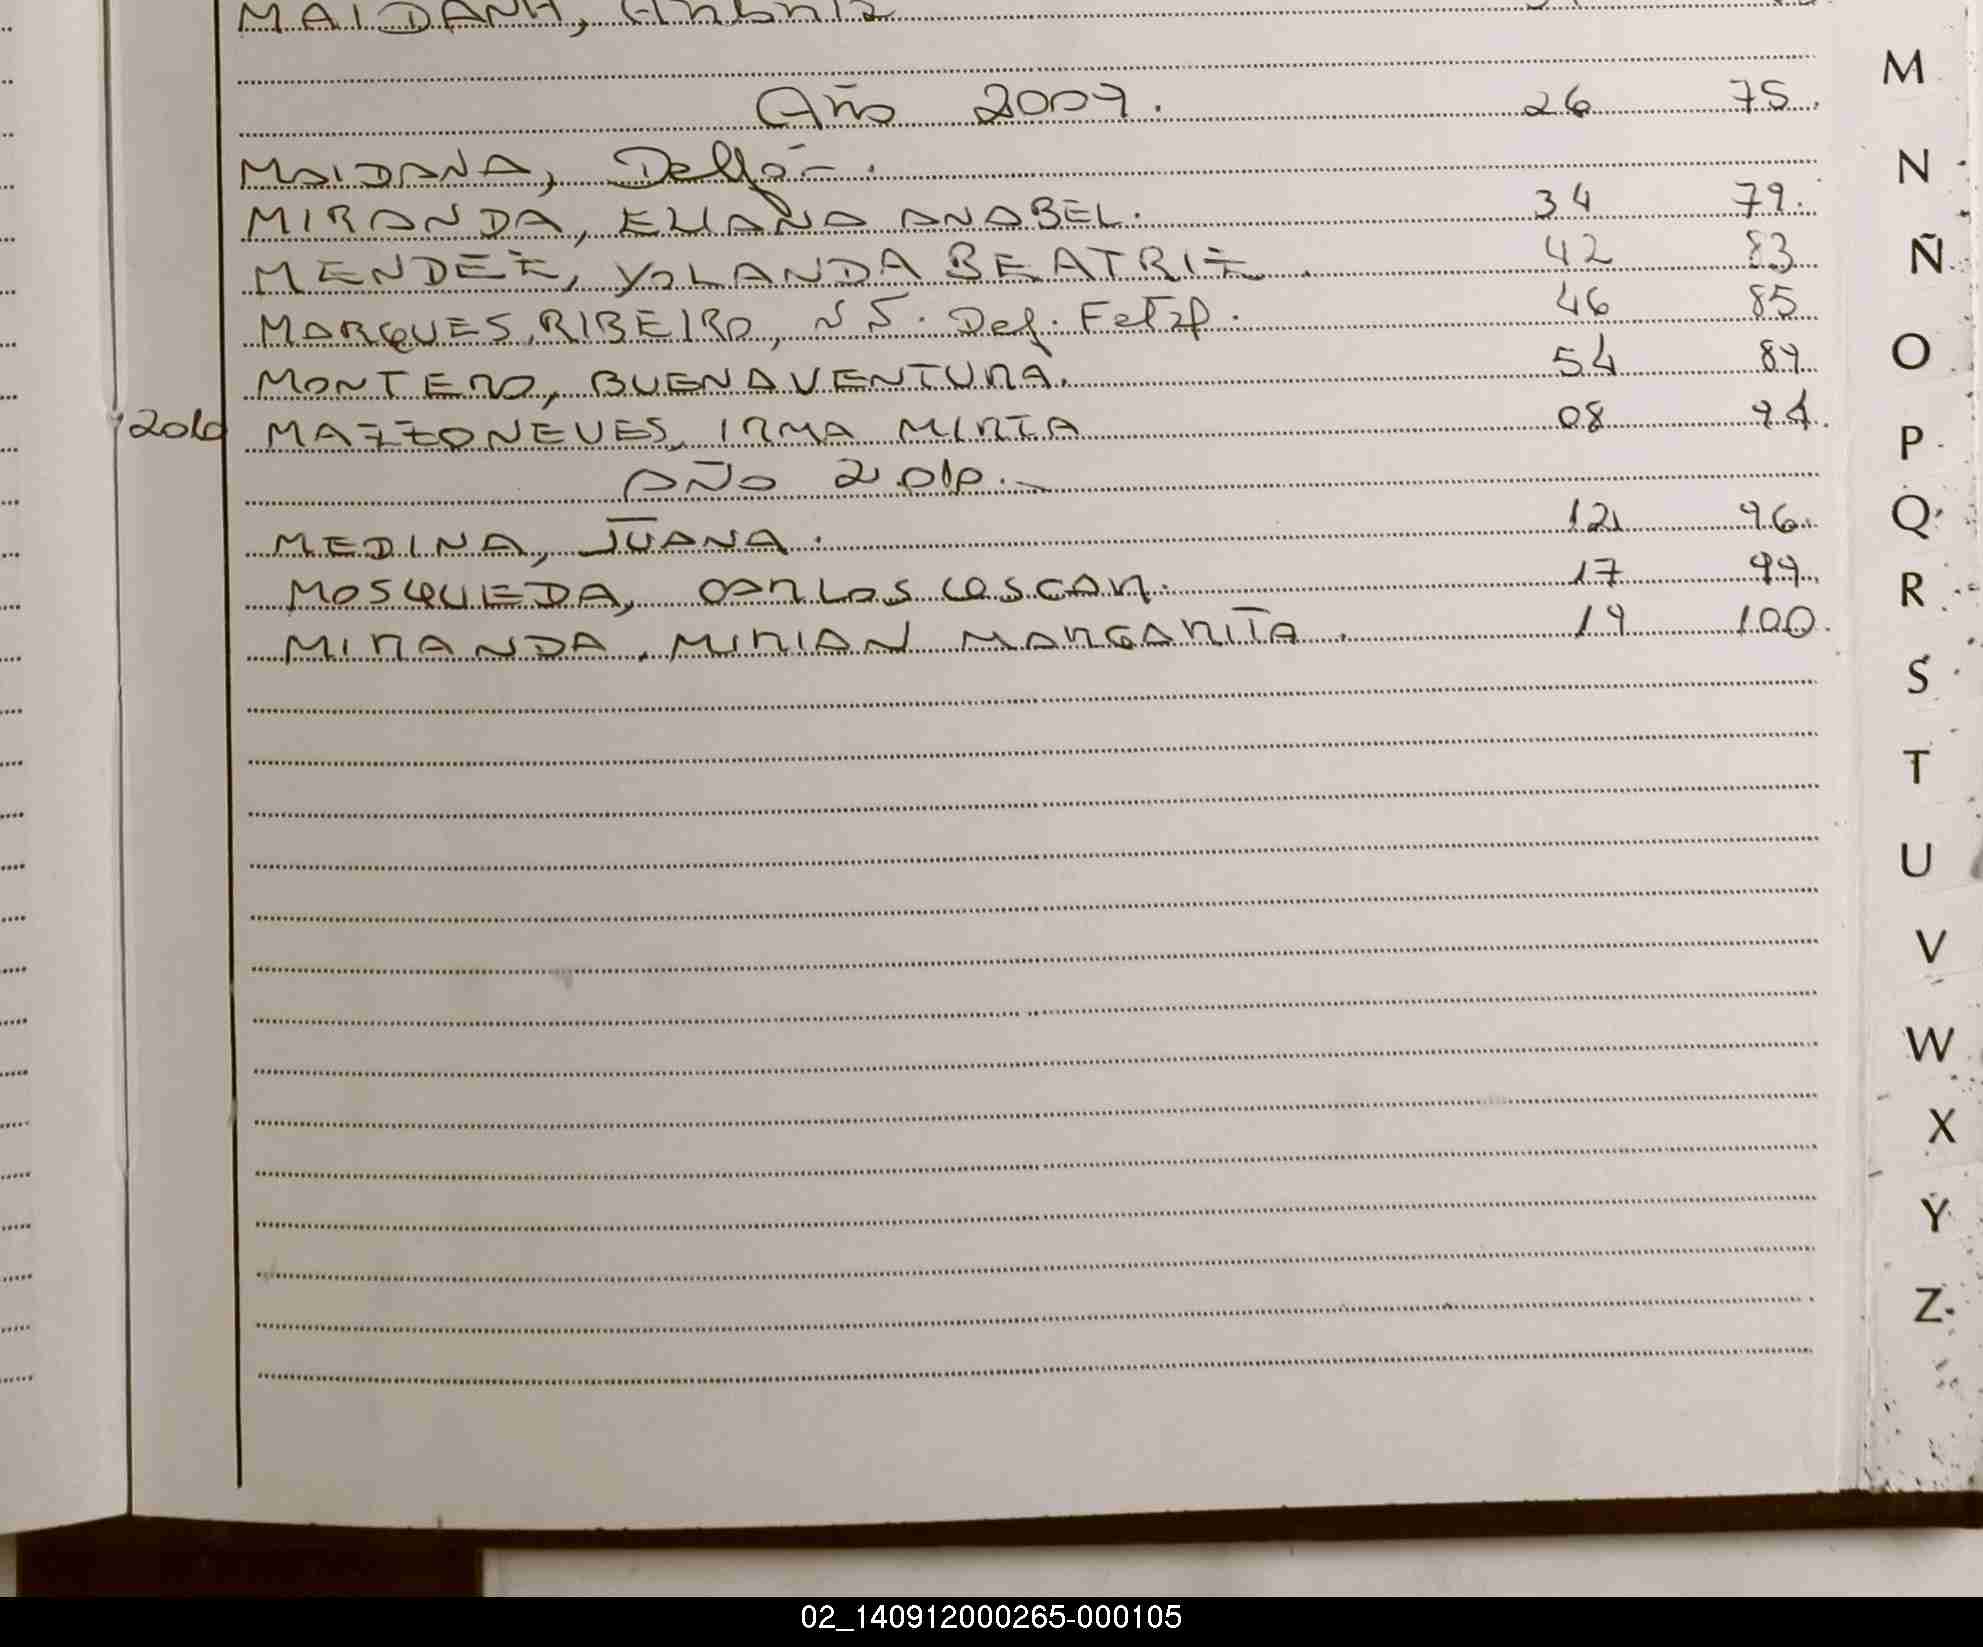 MAIDANA,
Año 2009. 26 75.
MAIDANA, Delfín.
MIRANDA, ELIANA ANABEL. 34 79.
MENDEZ, YOLANDA BEATRIZ. 42 83
MARQUES, RIBEIRO, NN. Def. Fetal. 46 85
MONTERO, BUENAVENTURA. 54 89
2010 MAZZONEVES, IRMA MIRTA 08 94.
AÑO 2010.-
MEDINA, JUANA. 12 96.
MOSQUEDA, CARLOS OSCAR. 17 99.
MIRANDA, MIRIAN MARGARITA. 19 100.
M
N
Ñ
O
P
Q
R
S
T
U
V
W
X
Y
Z
02_140912000265-000105